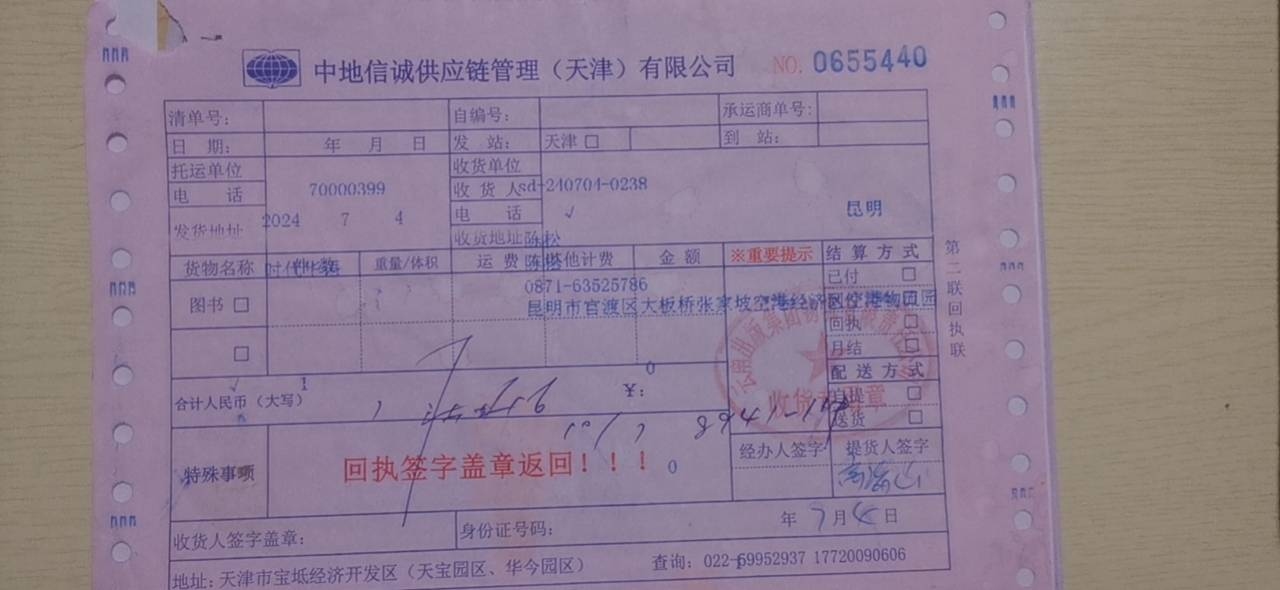 中地信诚供应链管理（天津）有限公司 NO. 0655440
清单号： 自编号： 承运商单号：
日 期： 年 月 日 发 站： 天津 □ 到 站：
托运单位 收货单位
电 话 70000399 收 货 人 sd-240704-0238
电 话 √ 昆明
发货地址 2024 7 4 收货地址 陈松
货物名称 件数 重量/体积 运 费 其他计费 金 额 ※重要提示 结 算 方 式
已付 □
0871-63525786
图书 □ 昆明市官渡区大板桥张家坡空港经济区空港物流园
回执 □
□ 月结 □
配 送 方 式
0
√ 1
合计人民币（大写） ￥： 自提 □
送货 □
收货专用章
经办人签字 提货人签字
特殊事项 回执签字盖章返回！！！ 0
年 7 月 4 日
收货人签字盖章： 身份证号码：
地址：天津市宝坻经济开发区（天宝园区、华今园区） 查询：022-59952937 17720090606
第二联回执联